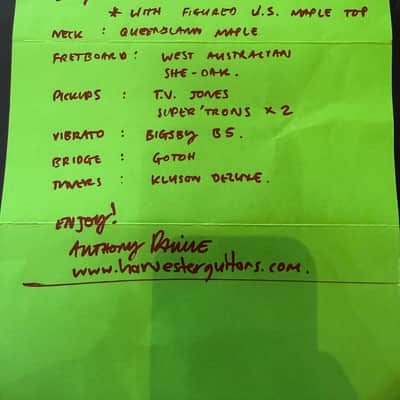 * WITH FIGURED U.S. MAPLE TOP
NECK : QUEENSLAND MAPLE
FRETBOARD : WEST AUSTRALIAN
SHE-OAK.
PICKUPS : T.V. JONES
SUPER'TRONS X 2
VIBRATO : BIGSBY B5.
BRIDGE : GOTOH
TUNERS : KLUSON DELUXE.
ENJOY!
ANTHONY
www.harvesterguitars.com.